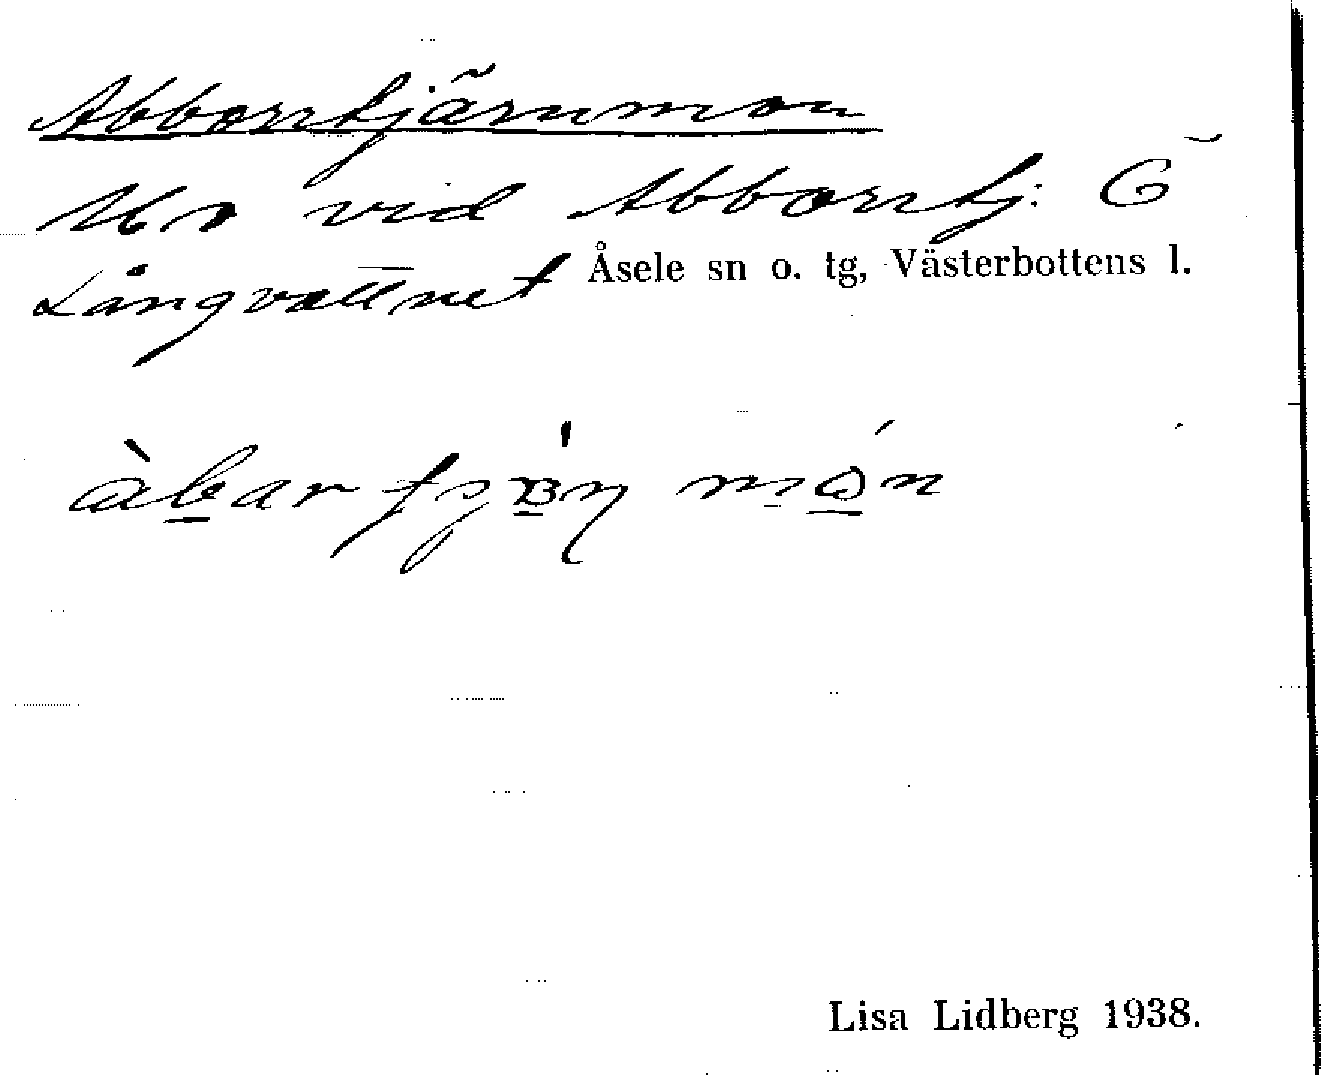 Abborrtjärnmon
Mo vid Abborrtj: Ö
Långvattnet Åsele sn o. tg, Västerbottens l.
Lisa Lidberg 1938.